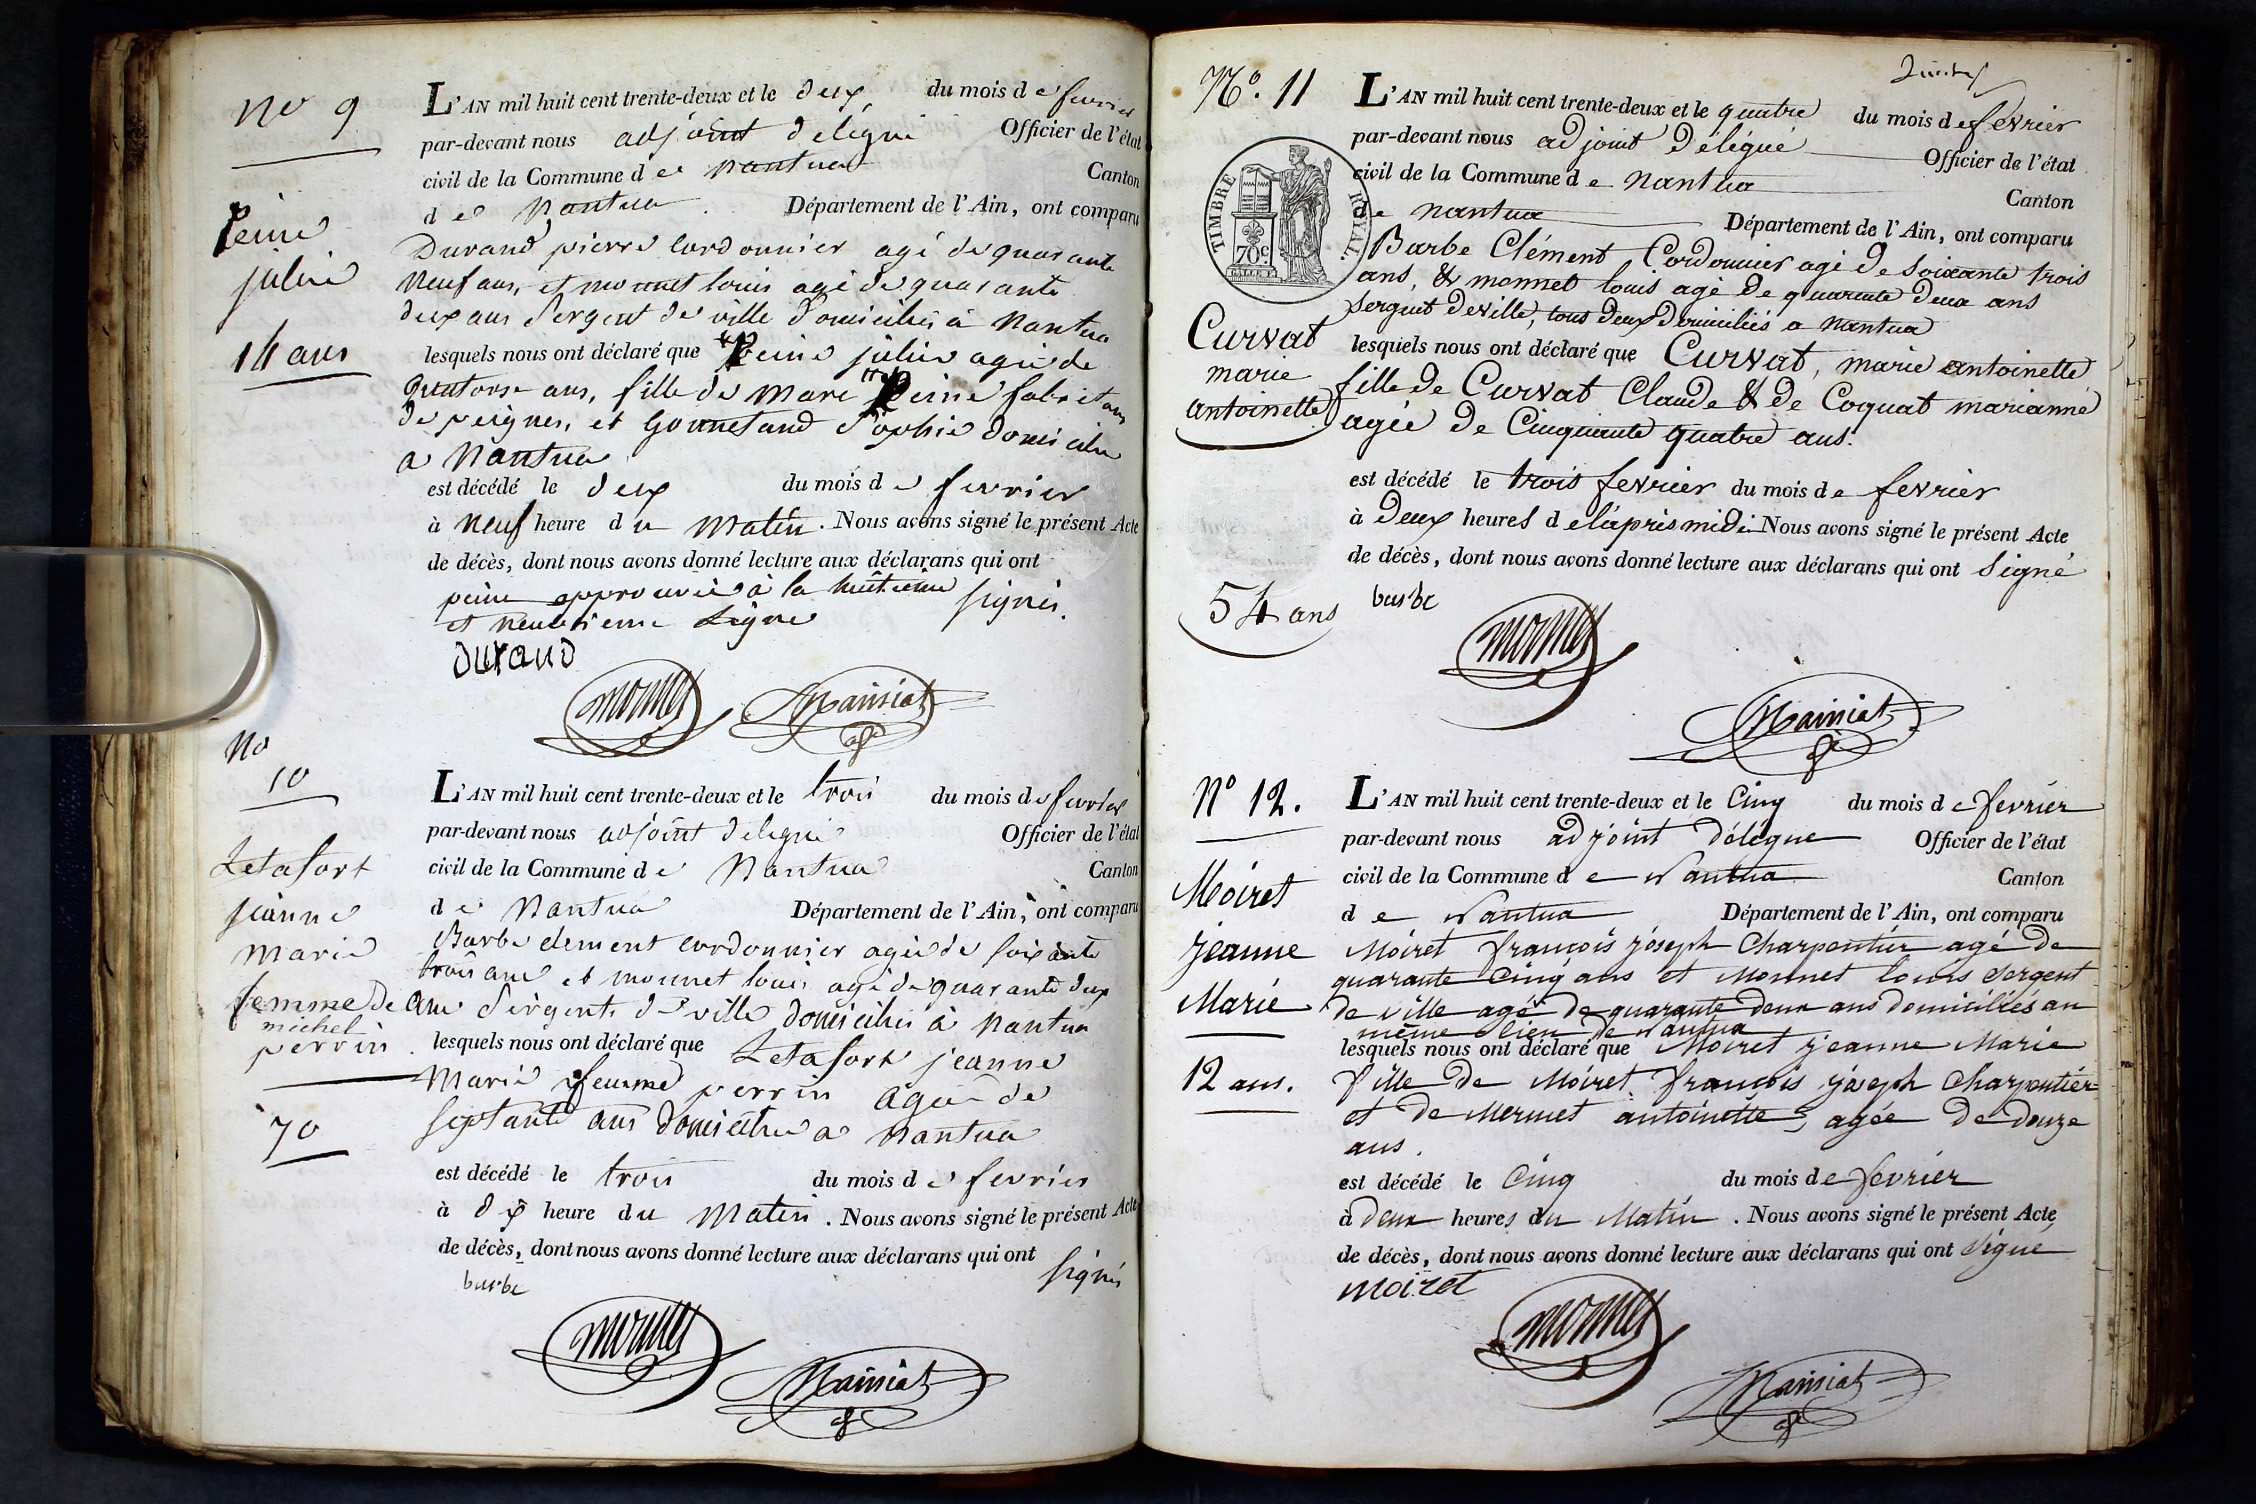 No 9
L'AN mil huit cent trente-deux et le deux du mois de fevrier
par-devant nous adjoint délégué Officier de l'état
civil de la Commune de Nantua Canton
de Nantua Département de l'Ain, ont comparu
Peine
julie
14 ans
Durand pierre cordonnier agé de quarante
neuf ans, et monnet louis agé de quarante
deux ans Sergent de ville domiciliés à Nantua
lesquels nous ont déclaré que Peine julie agée de
quatorse ans, fille de Marc Peine fabricant
de peignes, et Gonnetand Sophie domicilié
a Nantua
est décédé le deux du mois de fevrier
à neuf heure du Matin. Nous avons signé le présent Acte
de décès, dont nous avons donné lecture aux déclarans qui ont
peine approuvée à la huitieme signés.
et neuvieme Ligne
durand
monnet Mainiat
No
10
Letafort
jeanne
marie
femme de
michel
perrin
70
L'AN mil huit cent trente-deux et le trois du mois de fevrier
par-devant nous adjoint délégué Officier de l'état
civil de la Commune de Nantua Canton
de Nantua Département de l'Ain, ont comparu
Barbe clement cordonnier agée de soixante
trois ans et monnet louis agé de quarante deux
ans Sergent de ville domiciliés à Nantua
lesquels nous ont déclaré que Letafort jeanne
Marie femme perrin agée de
septante ans domiciliée a Nantua
est décédé le trois du mois de fevrier
à dix heure du Matin. Nous avons signé le présent Acte
de décès, dont nous avons donné lecture aux déclarans qui ont signés
barbe
monnet
Mainiat
No. 11
TIMBRE ROYAL.
70c.
Curvat
marie
antoinette
54 ans
L'AN mil huit cent trente-deux et le quatre du mois de fevrier
par-devant nous adjoint délégué Officier de l'état
civil de la Commune de Nantua Canton
de nantua Département de l'Ain, ont comparu
Barbe Clément Cordonnier agé de soixante trois
ans, & monnet louis agé de quarante deux ans
sergent de ville, tous deux domiciliés a nantua
lesquels nous ont déclaré que Curvat, marie antoinette
fille de Curvat Claude & de Coquat marianne
agée de Cinquante quatre ans.
est décédé le trois fevrier du mois de fevrier
à deux heures de l'après midi Nous avons signé le présent Acte
de décès, dont nous avons donné lecture aux déclarans qui ont signé
barbe
monnet
Mainiat
No 12.
Moiret
jeanne
Marie
12 ans.
L'AN mil huit cent trente-deux et le Cinq du mois de fevrier
par-devant nous adjoint délégue Officier de l'état
civil de la Commune de Nantua Canton
de Nantua Département de l'Ain, ont comparu
Moiret françois joseph Charpentier agé de
quarante cinq ans et Monnet louis sergent
de ville agé de quarante deux ans domiciliés au
même lieu de Nantua
lesquels nous ont déclaré que Moiret jeanne Marie
fille de Moiret françois joseph Charpentier
et de Mermet antoinette, agée de douze
ans.
est décédé le Cinq du mois de fevrier
à deux heures du Matin. Nous avons signé le présent Acte,
de décès, dont nous avons donné lecture aux déclarans qui ont signé
moiret
monnet
Mainiat